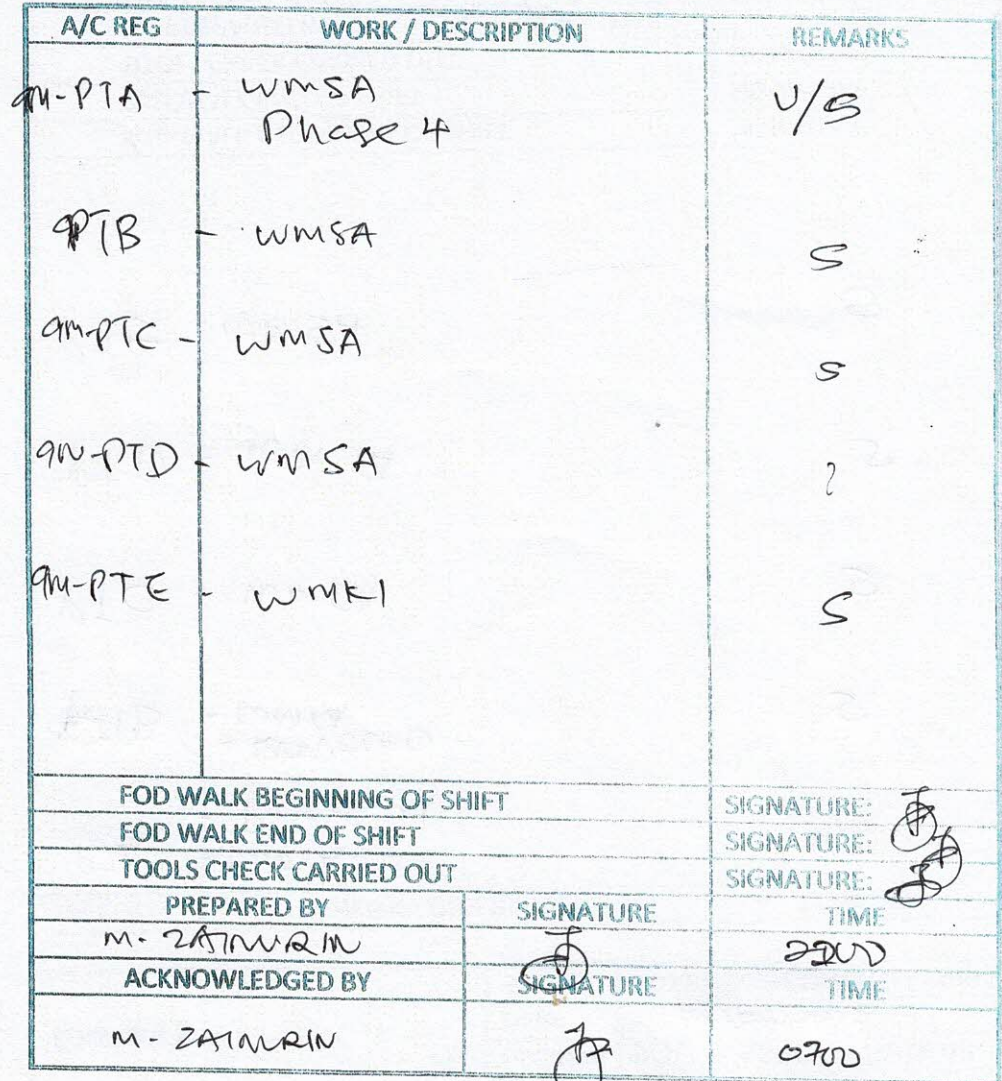 A/C REG WORK / DESCRIPTION REMARKS
9M-PTA - WMSA U/S
Phase 4
PTB - WMSA S
9M-PTC - WMSA S
9M-PTD - WMSA
9M-PTE - WMKI S
FOD WALK BEGINNING OF SHIFT SIGNATURE:
FOD WALK END OF SHIFT SIGNATURE:
TOOLS CHECK CARRIED OUT SIGNATURE:
PREPARED BY SIGNATURE TIME
M. ZAINURIN 2200
ACKNOWLEDGED BY SIGNATURE TIME
M. ZAINURIN 0700